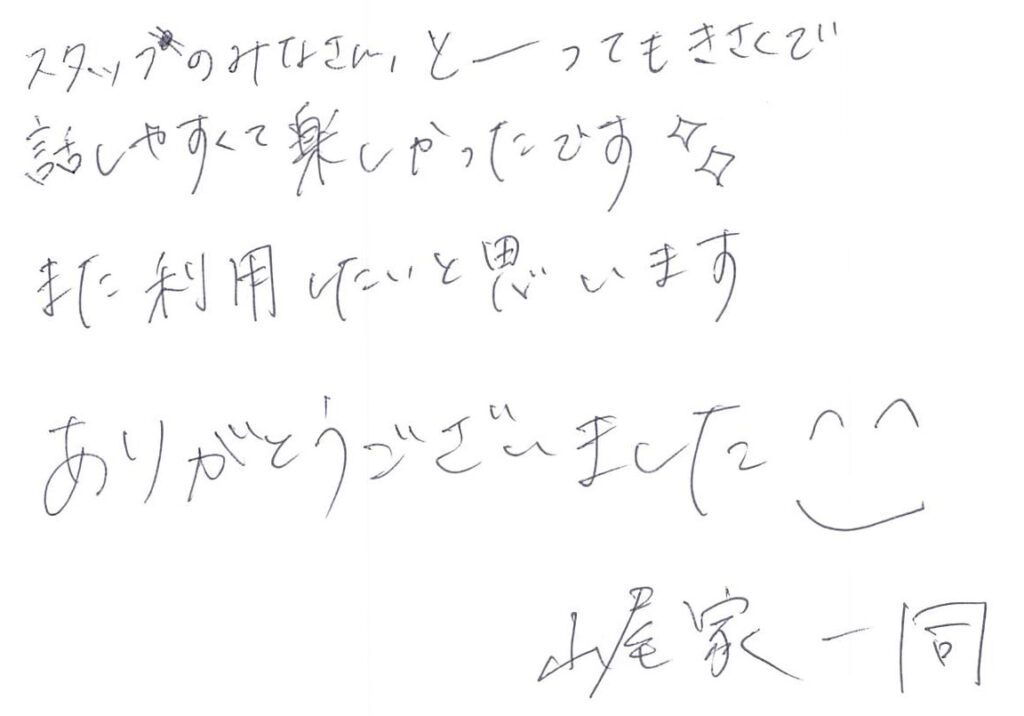 スタッフのみなさん、とーってもきさくで
話しやすくて楽しかったです
また利用したいと思います
ありがとうございました
山尾家一同